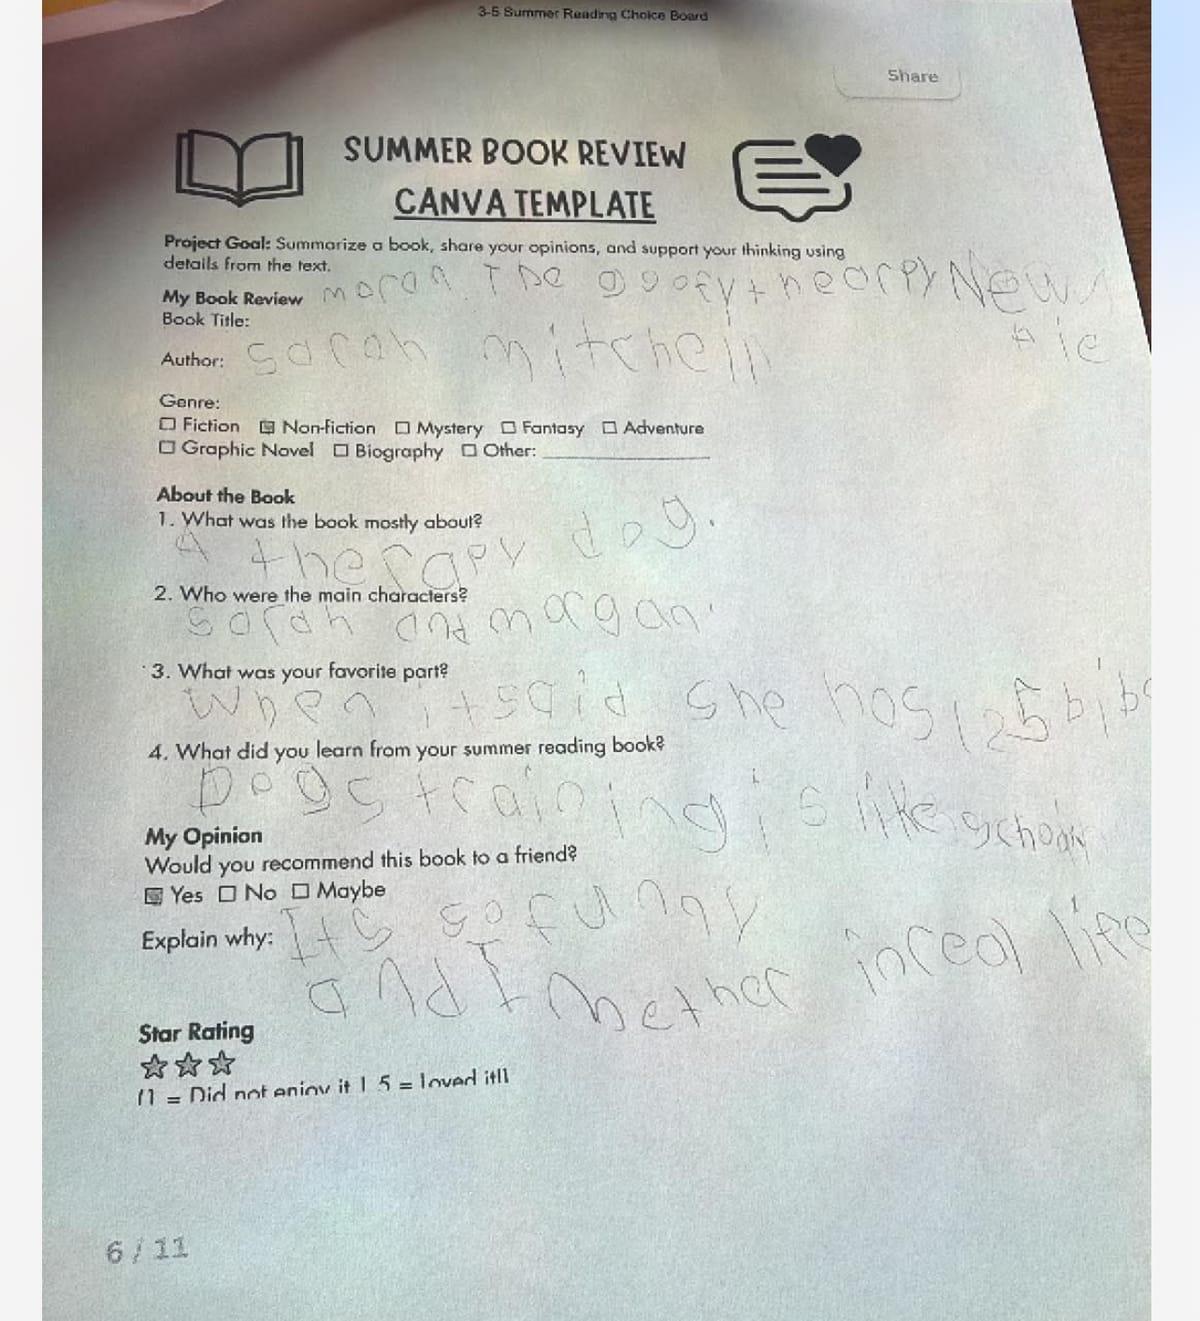 3-5 Summer Reading Choice Board
Share
SUMMER BOOK REVIEW
CANVA TEMPLATE
Project Goal: Summarize a book, share your opinions, and support your thinking using
details from the text.
My Book Review
Book Title: The goofy
Author: Sarah mitchell
Genre:
Fiction Non-fiction Mystery Fantasy Adventure
Graphic Novel Biography Other:
About the Book
1. What was the book mostly about?
A therapy dog.
2. Who were the main characters?
Sarah and morgan.
3. What was your favorite part?
When it said she has 125 bibs
4. What did you learn from your summer reading book?
Dogs training is like school
My Opinion
Would you recommend this book to a friend?
Yes No Maybe
Explain why: Its so funny
and I in real life
Star Rating
(1 = Did not enjoy it | 5 = loved it!)
6 / 11